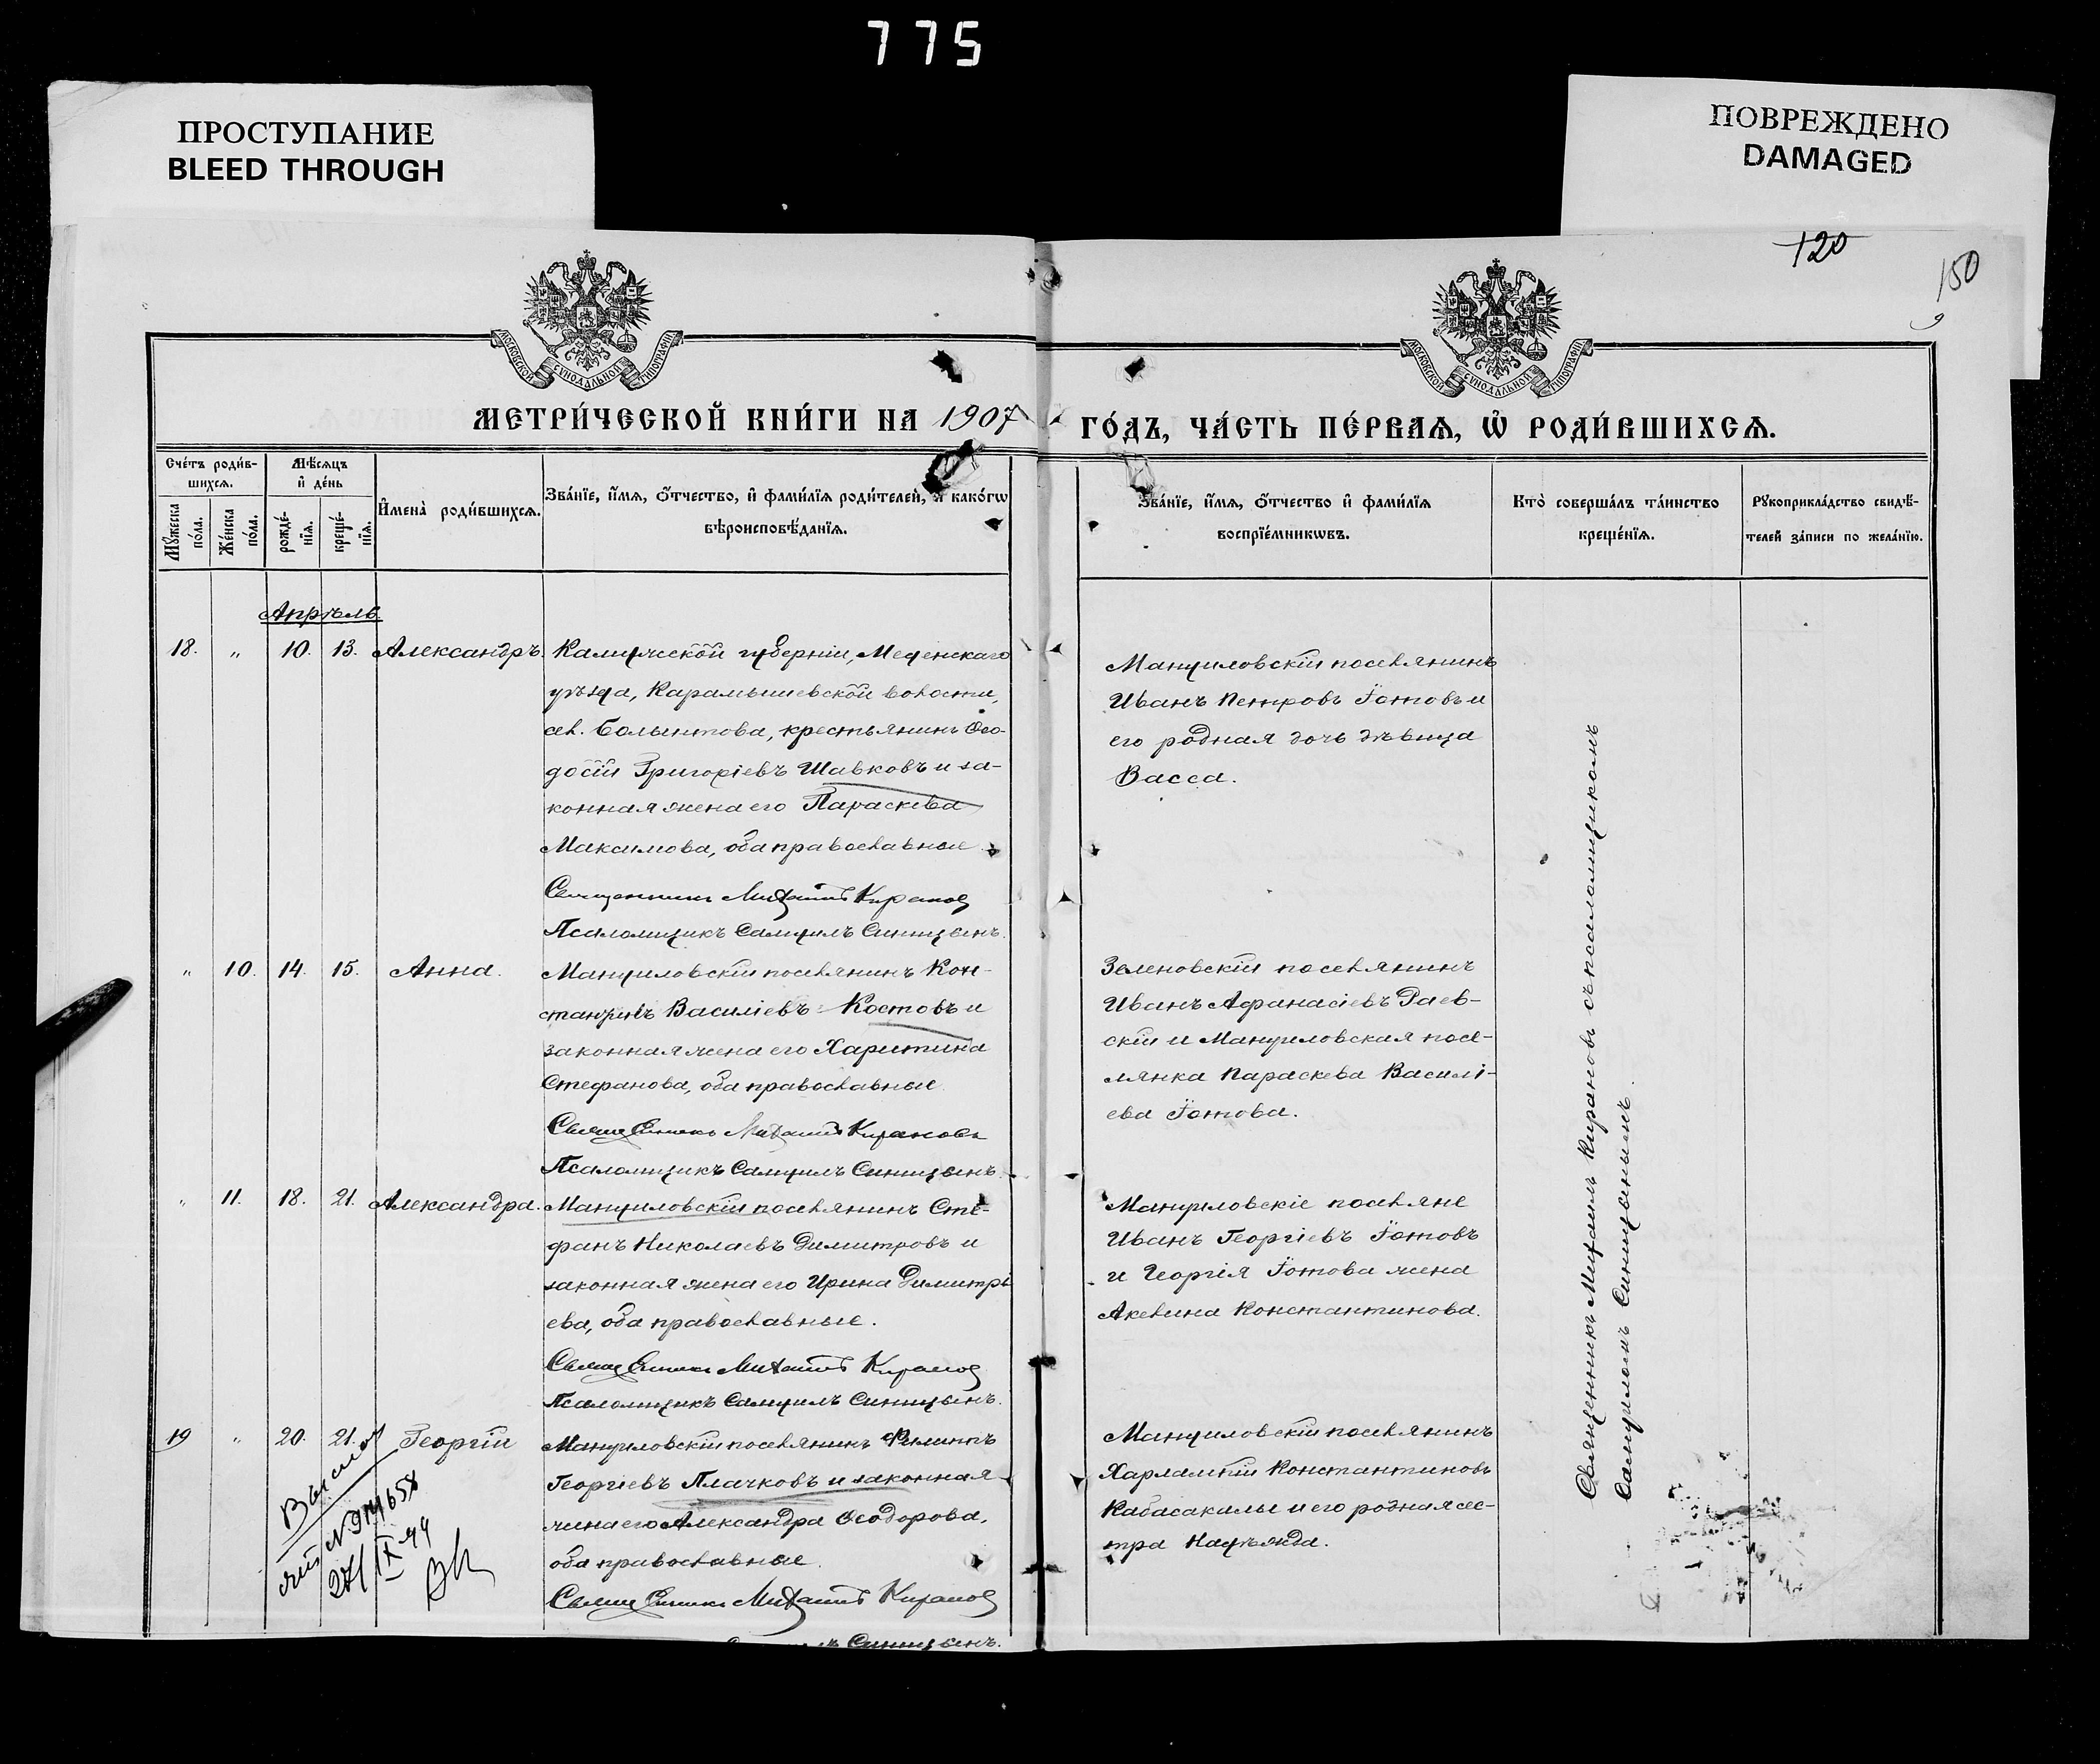 775
ПРОСТУПАНИЕ
BLEED THROUGH
ПОВРЕЖДЕНО
DAMAGED
120
150
МОСКОВСКОЙ СѴНОДАЛЬНОЙ ТИПОГРАФІИ
МОСКОВСКОЙ СѴНОДАЛЬНОЙ ТИПОГРАФІИ
МЕТРИ́ЧЕСКОЙ КНИ́ГИ НА 1907 ГО́ДЪ, ЧА́СТЬ ПЕ́РВАѦ, Ѡ҆ РОДИ́ВШИХСѦ.
Сче́тъ роди́в-
шихсѧ.
Мѣ́сѧцъ
и҆ де́нь
Мꙋ́жеска
по́ла.
Же́нска
по́ла.
рожде́-
нїѧ.
креще́-
нїѧ.
И҆мена̀ роди́вшихсѧ.
Зва́нїе, и҆́мѧ, ѻ҆́тчество, и҆ фами́лїѧ роди́телей, и҆ како́гѡ
вѣроисповѣ́данїѧ.
Зва́нїе, и҆́мѧ, ѻ҆́тчество и҆ фами́лїѧ
воспрїе́мникѡвъ.
Кто̀ соверша́лъ та́инство
креще́нїѧ.
Рꙋкоприкла́дство свидѣ́-
телей за́писи по жела́нїю.
Апрѣль
18. „ 10. 13. Александръ.
Калужской губерніи, Меденскаго
уѣзда, Карамышевской волости,
сел. Болынтова, крестьянинъ Ѳео-
досій Григоріевъ Шавковъ и за-
конная жена его Параскева
Максимова, оба православные
Священникъ Михаилъ Кирановъ
Псаломщикъ Самуилъ Синицынъ.
Мануиловскій поселянинъ
Иванъ Петровъ Іотовъ и
его родная дочь дѣвица
Васса.
„ 10. 14. 15. Анна.
Мануиловскій поселянинъ Кон-
стантинъ Василіевъ Костовъ и
законная жена его Харитина
Стефанова, оба православные
Священникъ Михаилъ Кирановъ
Псаломщикъ Самуилъ Синицынъ.
Зеленовскій поселянинъ
Иванъ Афанасіевъ Раев-
скій и Мануиловская посе-
лянка Параскева Василі-
ева Іотова.
„ 11. 18. 21. Александра.
Мануиловскій поселянинъ Сте-
фанъ Николаевъ Димитровъ и
законная жена его Ирина Димитрі-
ева, оба православные.
Священникъ Михаилъ Кирановъ
Псаломщикъ Самуилъ Синицынъ.
Мануиловскіе поселяне
Иванъ Георгіевъ Іотовъ
и Георгія Іотова жена
Акелина Константинова.
19 „ 20. 21. Георгій
Мануиловскій поселянинъ Филиппъ
Георгіевъ Плачковъ и законная
жена его Александра Ѳеодорова,
оба православные.
Священникъ Михаилъ Кирановъ
Синицынъ.
Мануиловскій поселянинъ
Харлампій Константиновъ
Кабасакалы и его родная сес-
тра Надѣжда.
Священникъ Михаилъ Кирановъ съ псаломщикомъ
Самуиломъ Синицынымъ.